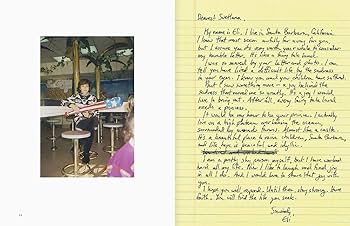 Dearest Svetlana,
My name is Eli. I live in Santa Barbara, California.
I know that must seem awfully far away for you,
but I assure you it's very worth your while to consider
my humble letter. It's like a fairy tale land.
I was so moved by your letter and photo. I can
tell you have lived a difficult life by the sadness
in your eyes. I know you want your children have swirled
But I saw something more - a joy behind the
sadness that moved me so greatly. It's a joy I would
love to bring out. After all, every fairy tale land
needs a princess.
It would be my honor to be your prince. I actually
live on a high plateau overlooking the ocean
surrounded by avocado trees. Almost like a castle.
It's a beautiful place to raise children, Santa Barbara,
and life here is peaceful and idyllic.
I am a pretty shy person myself, but I have worked
hard all my life. Now I like to laugh and find joy
in all I do. And I would love to share that joy with
you.
I hope you will respond. Until then, stay strong, have
faith. You will find the life you seek.
Sincerely,
Eli